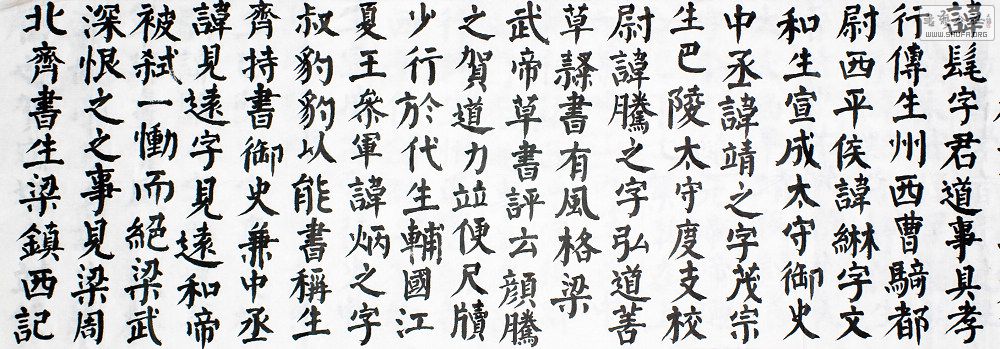 諱髦字君道事具孝
行傳生州西曹騎都
尉西平侯諱綝字文
和生宣成太守御史
中丞諱靖之字茂宗
生巴陵太守度支校
尉諱騰之字弘道善
草隸書有風格梁
武帝草書評云顏騰
之賀道力並便尺牘
少行於代生輔國江
夏王參軍諱炳之字
叔豹豹以能書稱生
齊持書御史兼中丞
諱見遠字見遠和帝
被弒一慟而絕梁武
深恨之之事見梁周
北齊書生梁鎮西記
WWW.SHUFA.ORG